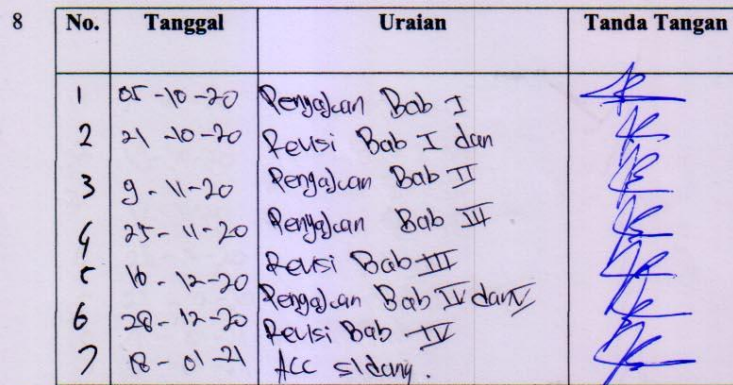 8
No. Tanggal Uraian Tanda Tangan
1 05-10-20 Pengajuan Bab I
2 21-10-20 Revisi Bab I dan
3 9-11-20 Pengajuan Bab II
4 25-11-20 Pengajuan Bab III
5 16-12-20 Revisi Bab III
6 28-12-20 Pengajuan Bab IV dan V
7 18-01-21 Revisi Bab IV
ACC sidang.